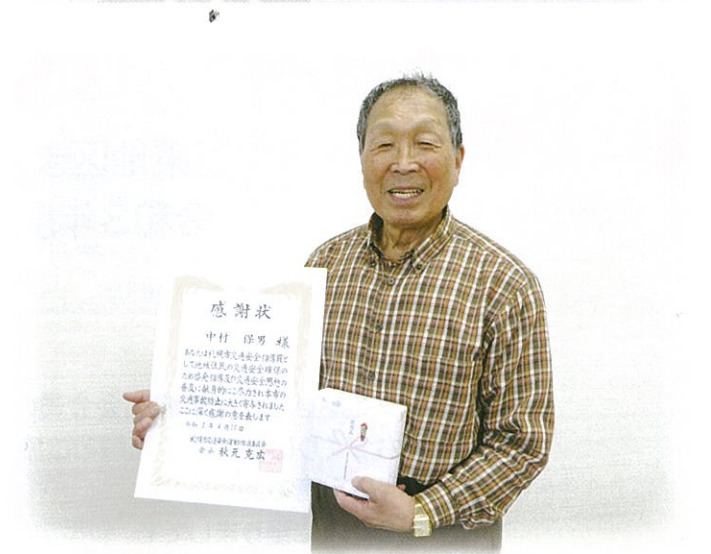 感謝状
中村 保男 様
あなたは札幌市交通安全指導員と
して地域住民の交通安全確保の
ため啓発指導及び交通安全思想の
普及に献身的にご尽力され本市の
交通事故防止に大きく寄与されました
ここに深く感謝の意を表します
会長 秋元克広